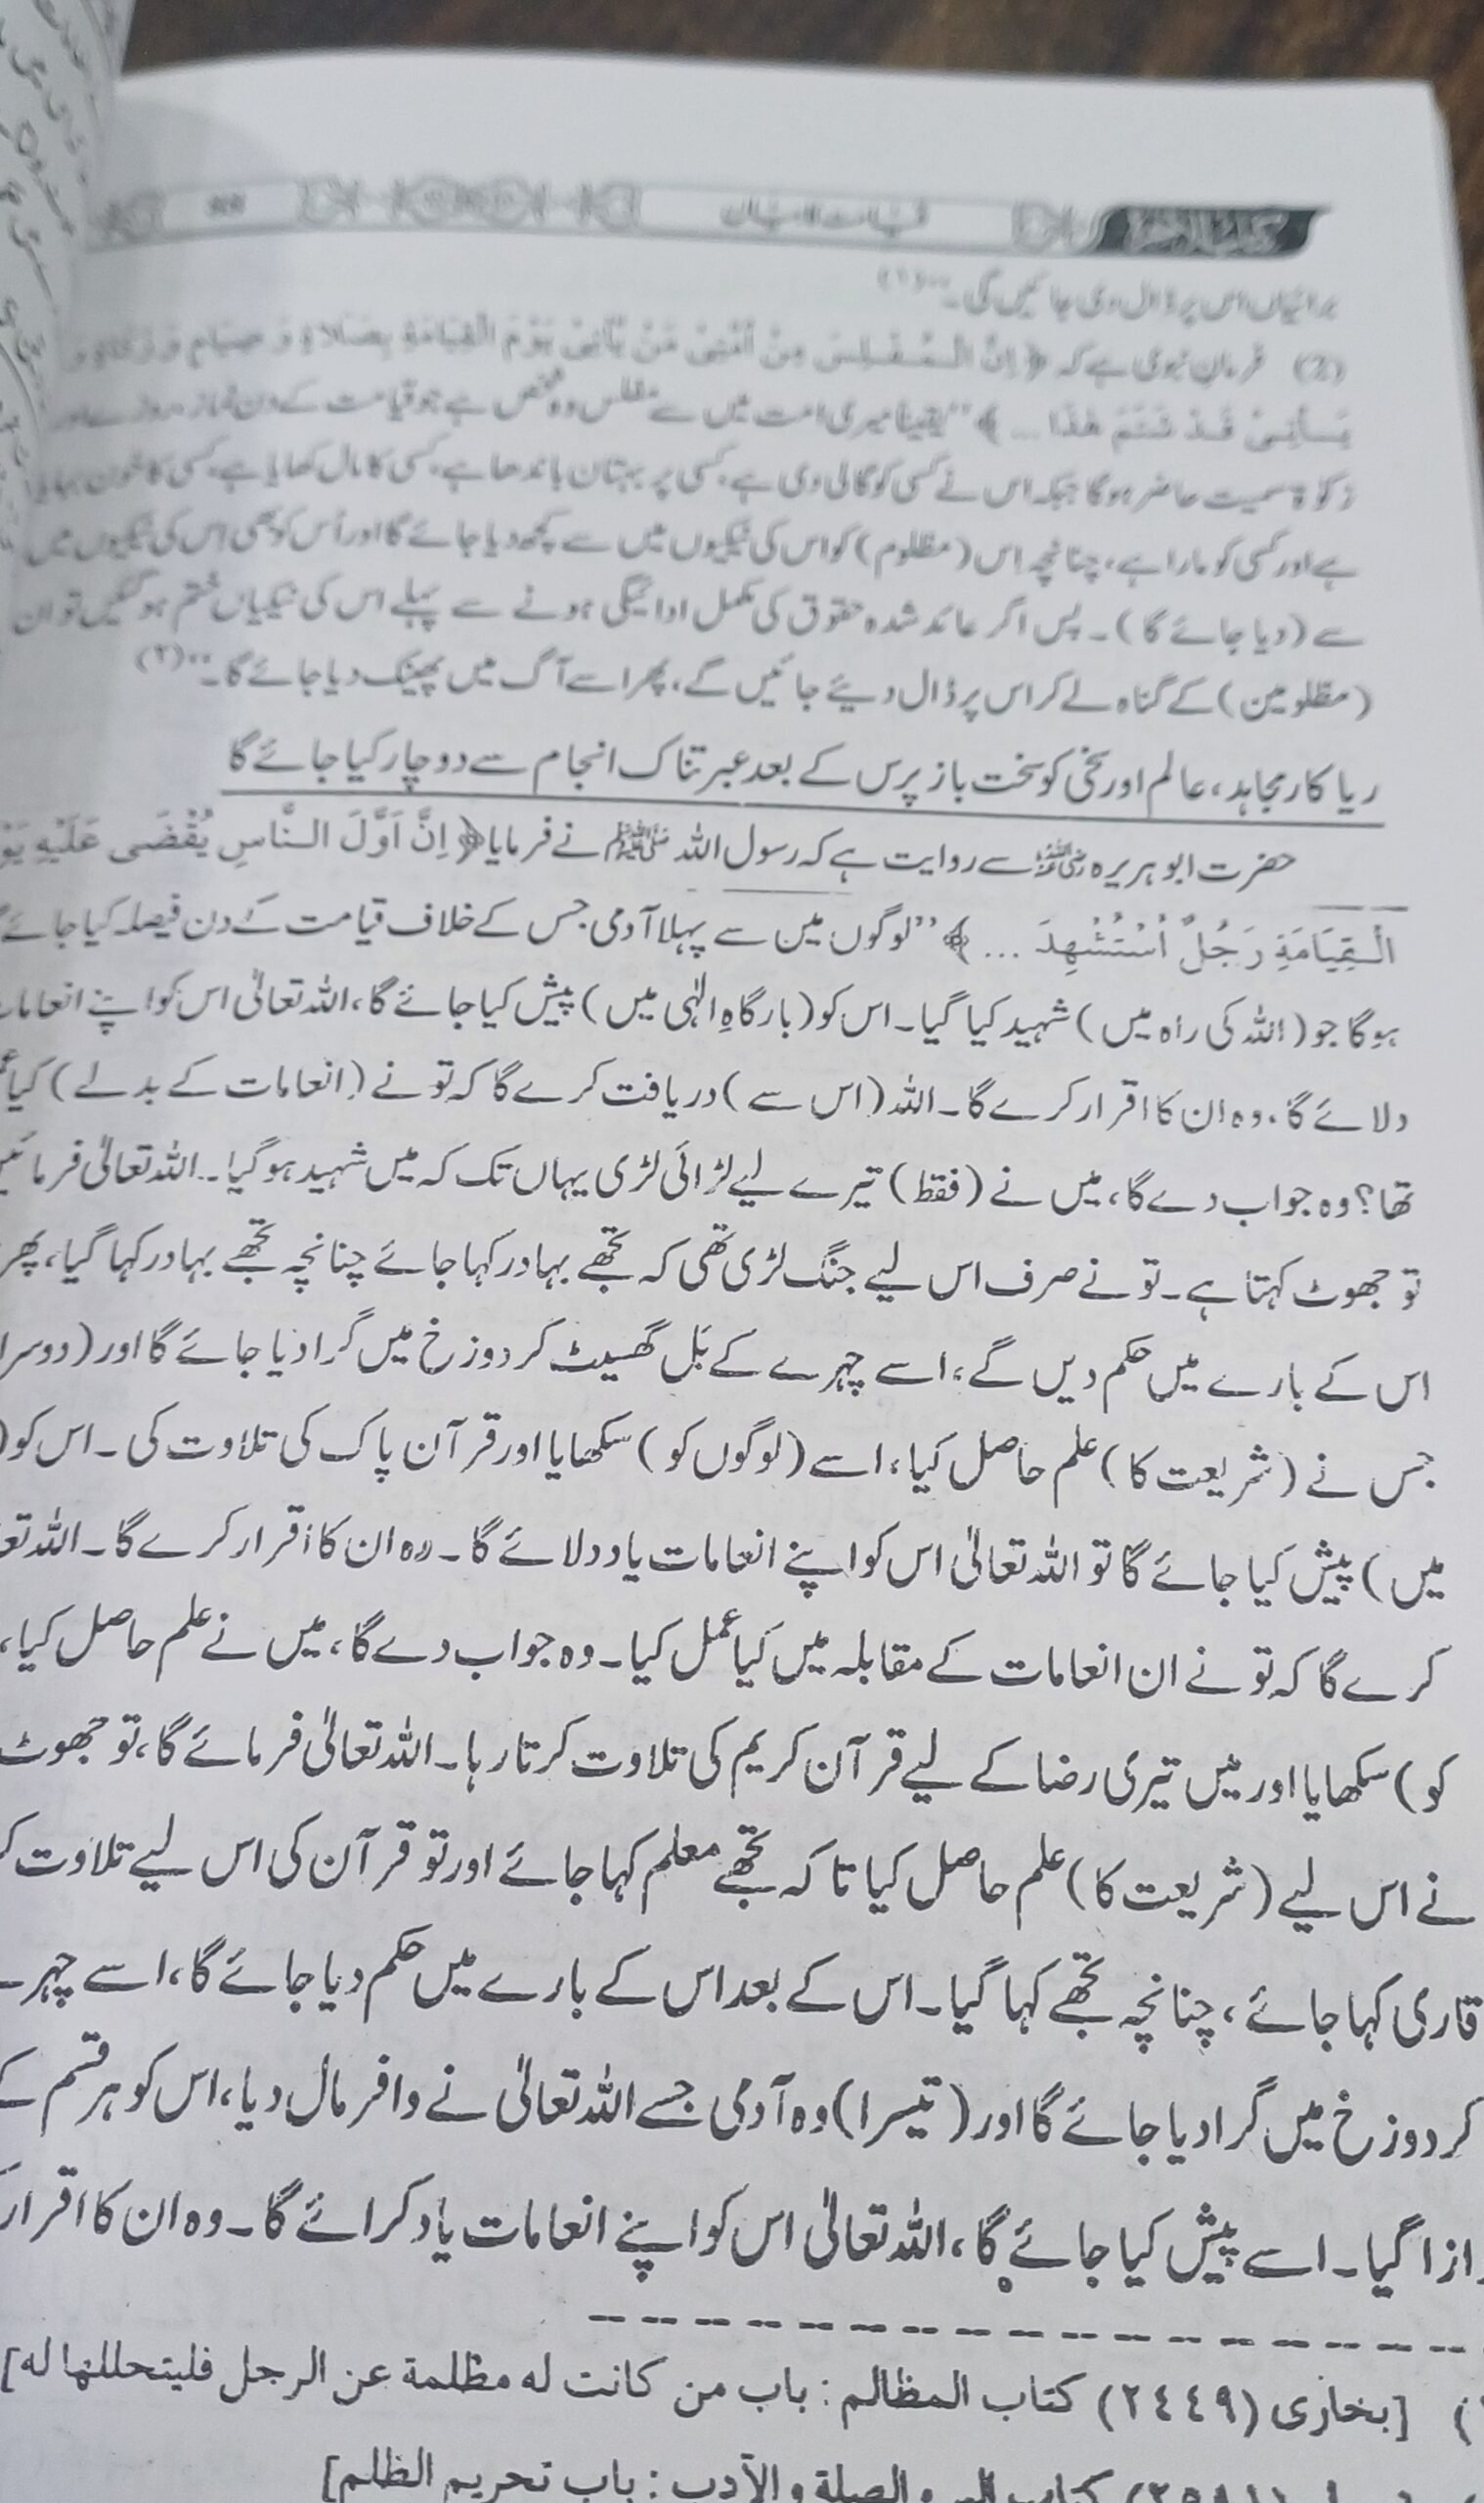 قیامت کا بیان
برائیاں اس پر ڈال دی جائیں گی۔‘‘(۱)
(2) فرمانِ نبوی ہے کہ ﴿ اِنَّ الْمُفْلِسَ مِنْ اُمَّتِیْ مَنْ یَّاْتِیْ یَوْمَ الْقِیَامَةِ بِصَلَاةٍ وَ صِیَامٍ وَ زَکَاةٍ وَ
یَاْتِیْ قَدْ شَتَمَ هٰذَا ... ﴾ ’’یقیناً میری امت میں سے مفلس وہ شخص ہے جو قیامت کے دن نماز، روزے اور
زکوٰۃ سمیت حاضر ہوگا جبکہ اس نے کسی کو گالی دی ہے، کسی پر بہتان باندھا ہے، کسی کا مال کھایا ہے، کسی کا خون بہایا
ہے اور کسی کو مارا ہے، چنانچہ اس (مظلوم) کو اس کی نیکیوں میں سے کچھ دیا جائے گا اور اُس کو بھی اس کی نیکیوں میں
سے (دیا جائے گا)۔ پس اگر عائد شدہ حقوق کی مکمل ادائیگی ہونے سے پہلے اس کی نیکیاں ختم ہوگئیں تو ان
(مظلومین) کے گناہ لے کر اس پر ڈال دیئے جائیں گے، پھر اسے آگ میں پھینک دیا جائے گا۔‘‘(۲)
ریا کار مجاہد، عالم اور سخی کو سخت باز پرس کے بعد عبرتناک انجام سے دوچار کیا جائے گا
حضرت ابو ہریرہ رضی اللہ عنہ سے روایت ہے کہ رسول اللہ ﷺ نے فرمایا ﴿ اِنَّ اَوَّلَ النَّاسِ یُقْضَی عَلَیْهِ یَوْ
الْقِیَامَةِ رَجُلٌ اُسْتُشْهِدَ ... ﴾ ’’لوگوں میں سے پہلا آدمی جس کے خلاف قیامت کے دن فیصلہ کیا جائے
ہوگا جو (اللہ کی راہ میں) شہید کیا گیا۔ اس کو (بارگاہِ الٰہی میں) پیش کیا جائے گا، اللہ تعالیٰ اس کو اپنے انعامات
دلائے گا، وہ ان کا اقرار کرے گا۔ اللہ (اس سے) دریافت کرے گا کہ تو نے (انعامات کے بدلے) کیا
تھا؟ وہ جواب دے گا، میں نے (فقط) تیرے لیے لڑائی لڑی یہاں تک کہ میں شہید ہوگیا۔ اللہ تعالیٰ فرمائیں
تو جھوٹ کہتا ہے۔ تو نے صرف اس لیے جنگ لڑی تھی کہ تجھے بہادر کہا جائے چنانچہ تجھے بہادر کہا گیا، پھر
اس کے بارے میں حکم دیں گے، اسے چہرے کے بَل گھسیٹ کر دوزخ میں گرا دیا جائے گا اور (دوسرا
جس نے (شریعت کا) علم حاصل کیا، اسے (لوگوں کو) سکھایا اور قرآن پاک کی تلاوت کی۔ اس کو (
میں) پیش کیا جائے گا تو اللہ تعالیٰ اس کو اپنے انعامات یاد دلائے گا۔ وہ ان کا اقرار کرے گا۔ اللہ تع
کرے گا کہ تو نے ان انعامات کے مقابلہ میں کیا عمل کیا۔ وہ جواب دے گا، میں نے علم حاصل کیا،
کو) سکھایا اور میں تیری رضا کے لیے قرآن کریم کی تلاوت کرتا رہا۔ اللہ تعالیٰ فرمائے گا، تو جھوٹ
نے اس لیے (شریعت کا) علم حاصل کیا تا کہ تجھے معلم کہا جائے اور تو قرآن کی اس لیے تلاوت
قاری کہا جائے، چنانچہ تجھے کہا گیا۔ اس کے بعد اس کے بارے میں حکم دیا جائے گا، اسے چہر
کر دوزخ میں گرا دیا جائے گا اور (تیسرا) وہ آدمی جسے اللہ تعالیٰ نے وافر مال دیا، اس کو ہر قسم کے
ازا گیا۔ اسے پیش کیا جائے گا، اللہ تعالیٰ اس کو اپنے انعامات یاد کرائے گا۔ وہ ان کا اقرار
) [بخاری (۲۴۴۹) کتاب المظالم : باب من کانت له مظلمة عن الرجل فلیتحللها له]
(۲۵۸۱) کتاب البر و الصلة و الآدب : باب تحریم الظلم]